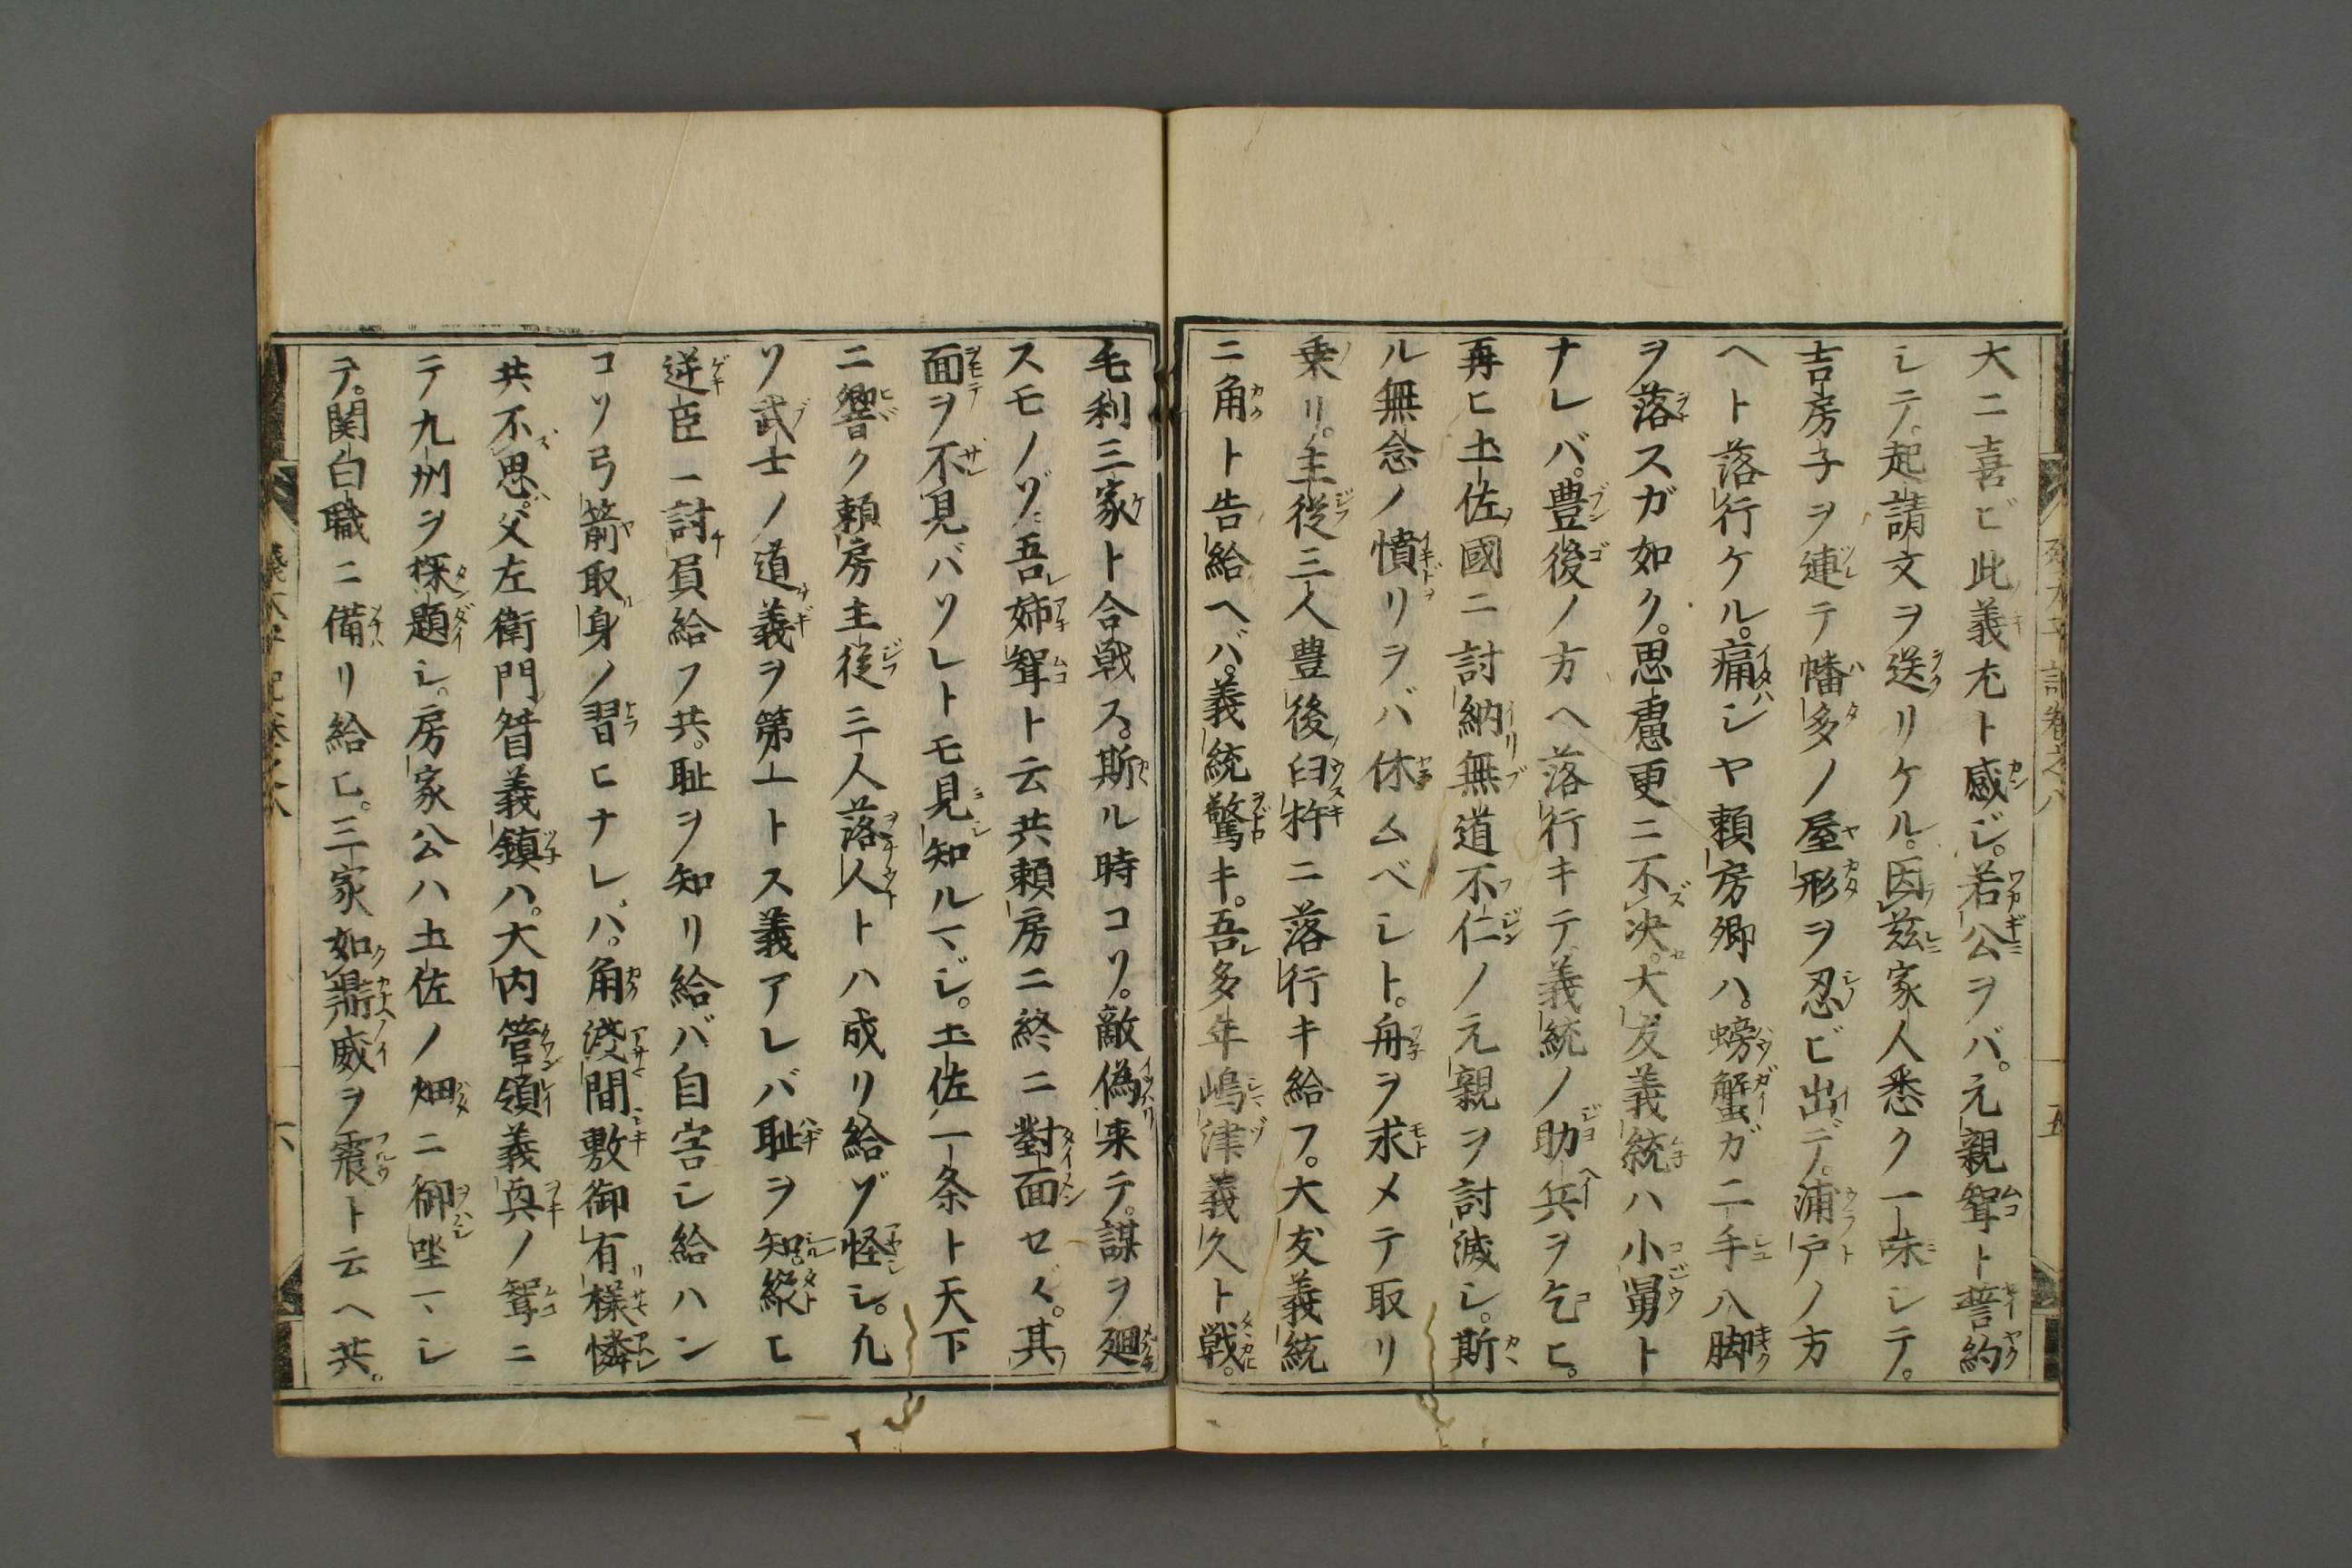 大ニ喜ビ此義尤ト感ジ。若公ヲバ。元親聟ト誓約
シテ。起請文ヲ送リケル。因茲家人悉ク一味シテ。
吉房子ヲ連テ幡多ノ屋形ヲ忍ビ出デ。浦戸ノ方
ヘト落行ケル。痛シヤ頼房卿ハ。螃蟹ガ二手八脚
ヲ落スガ如ク。思慮更ニ不决。大友義統ハ小舅ト
ナレバ。豊後ノ方ヘ落行キテ義統ノ助兵ヲ乞ヒ。
再ヒ土佐國ニ討納無道不仁ノ元親ヲ討滅シ。斯
ル無念ノ憤リヲバ休ムベシト。舟ヲ求メテ取リ
乗リ。主従三人豊後臼杵ニ落行キ給フ。大友義統
ニ角ト告給ヘバ。義統驚キ。吾多年嶋津義久ト戦。
毛利三家ト合戦ス。斯ル時コソ。敵偽来テ。謀ヲ廻
スモノゾ。吾姉聟ト云共頼房ニ終ニ對面セズ。其
面ヲ不見バソレトモ見知ルマジ。土佐ノ一条ト天下
ニ響ク頼房主従三人落人トハ成リ給ゾ怪シ。凡
ソ武士ノ道義ヲ第一トス義アレバ耻ヲ知縦ヒ
逆臣ニ討員給フ共。耻ヲ知リ給バ自害シ給ハン
コソ弓箭取身ノ習ヒナレバ。角淺間敷御有樣憐
共不思。父左衛門督義鎮ハ。大内管領義奥ノ聟ニ
テ九州ヲ探題シ。房家公ハ土佐ノ畑ニ御坐マシ
テ。関白職ニ備リ給ヒ。三家如鼎威ヲ震ト云ヘ共。